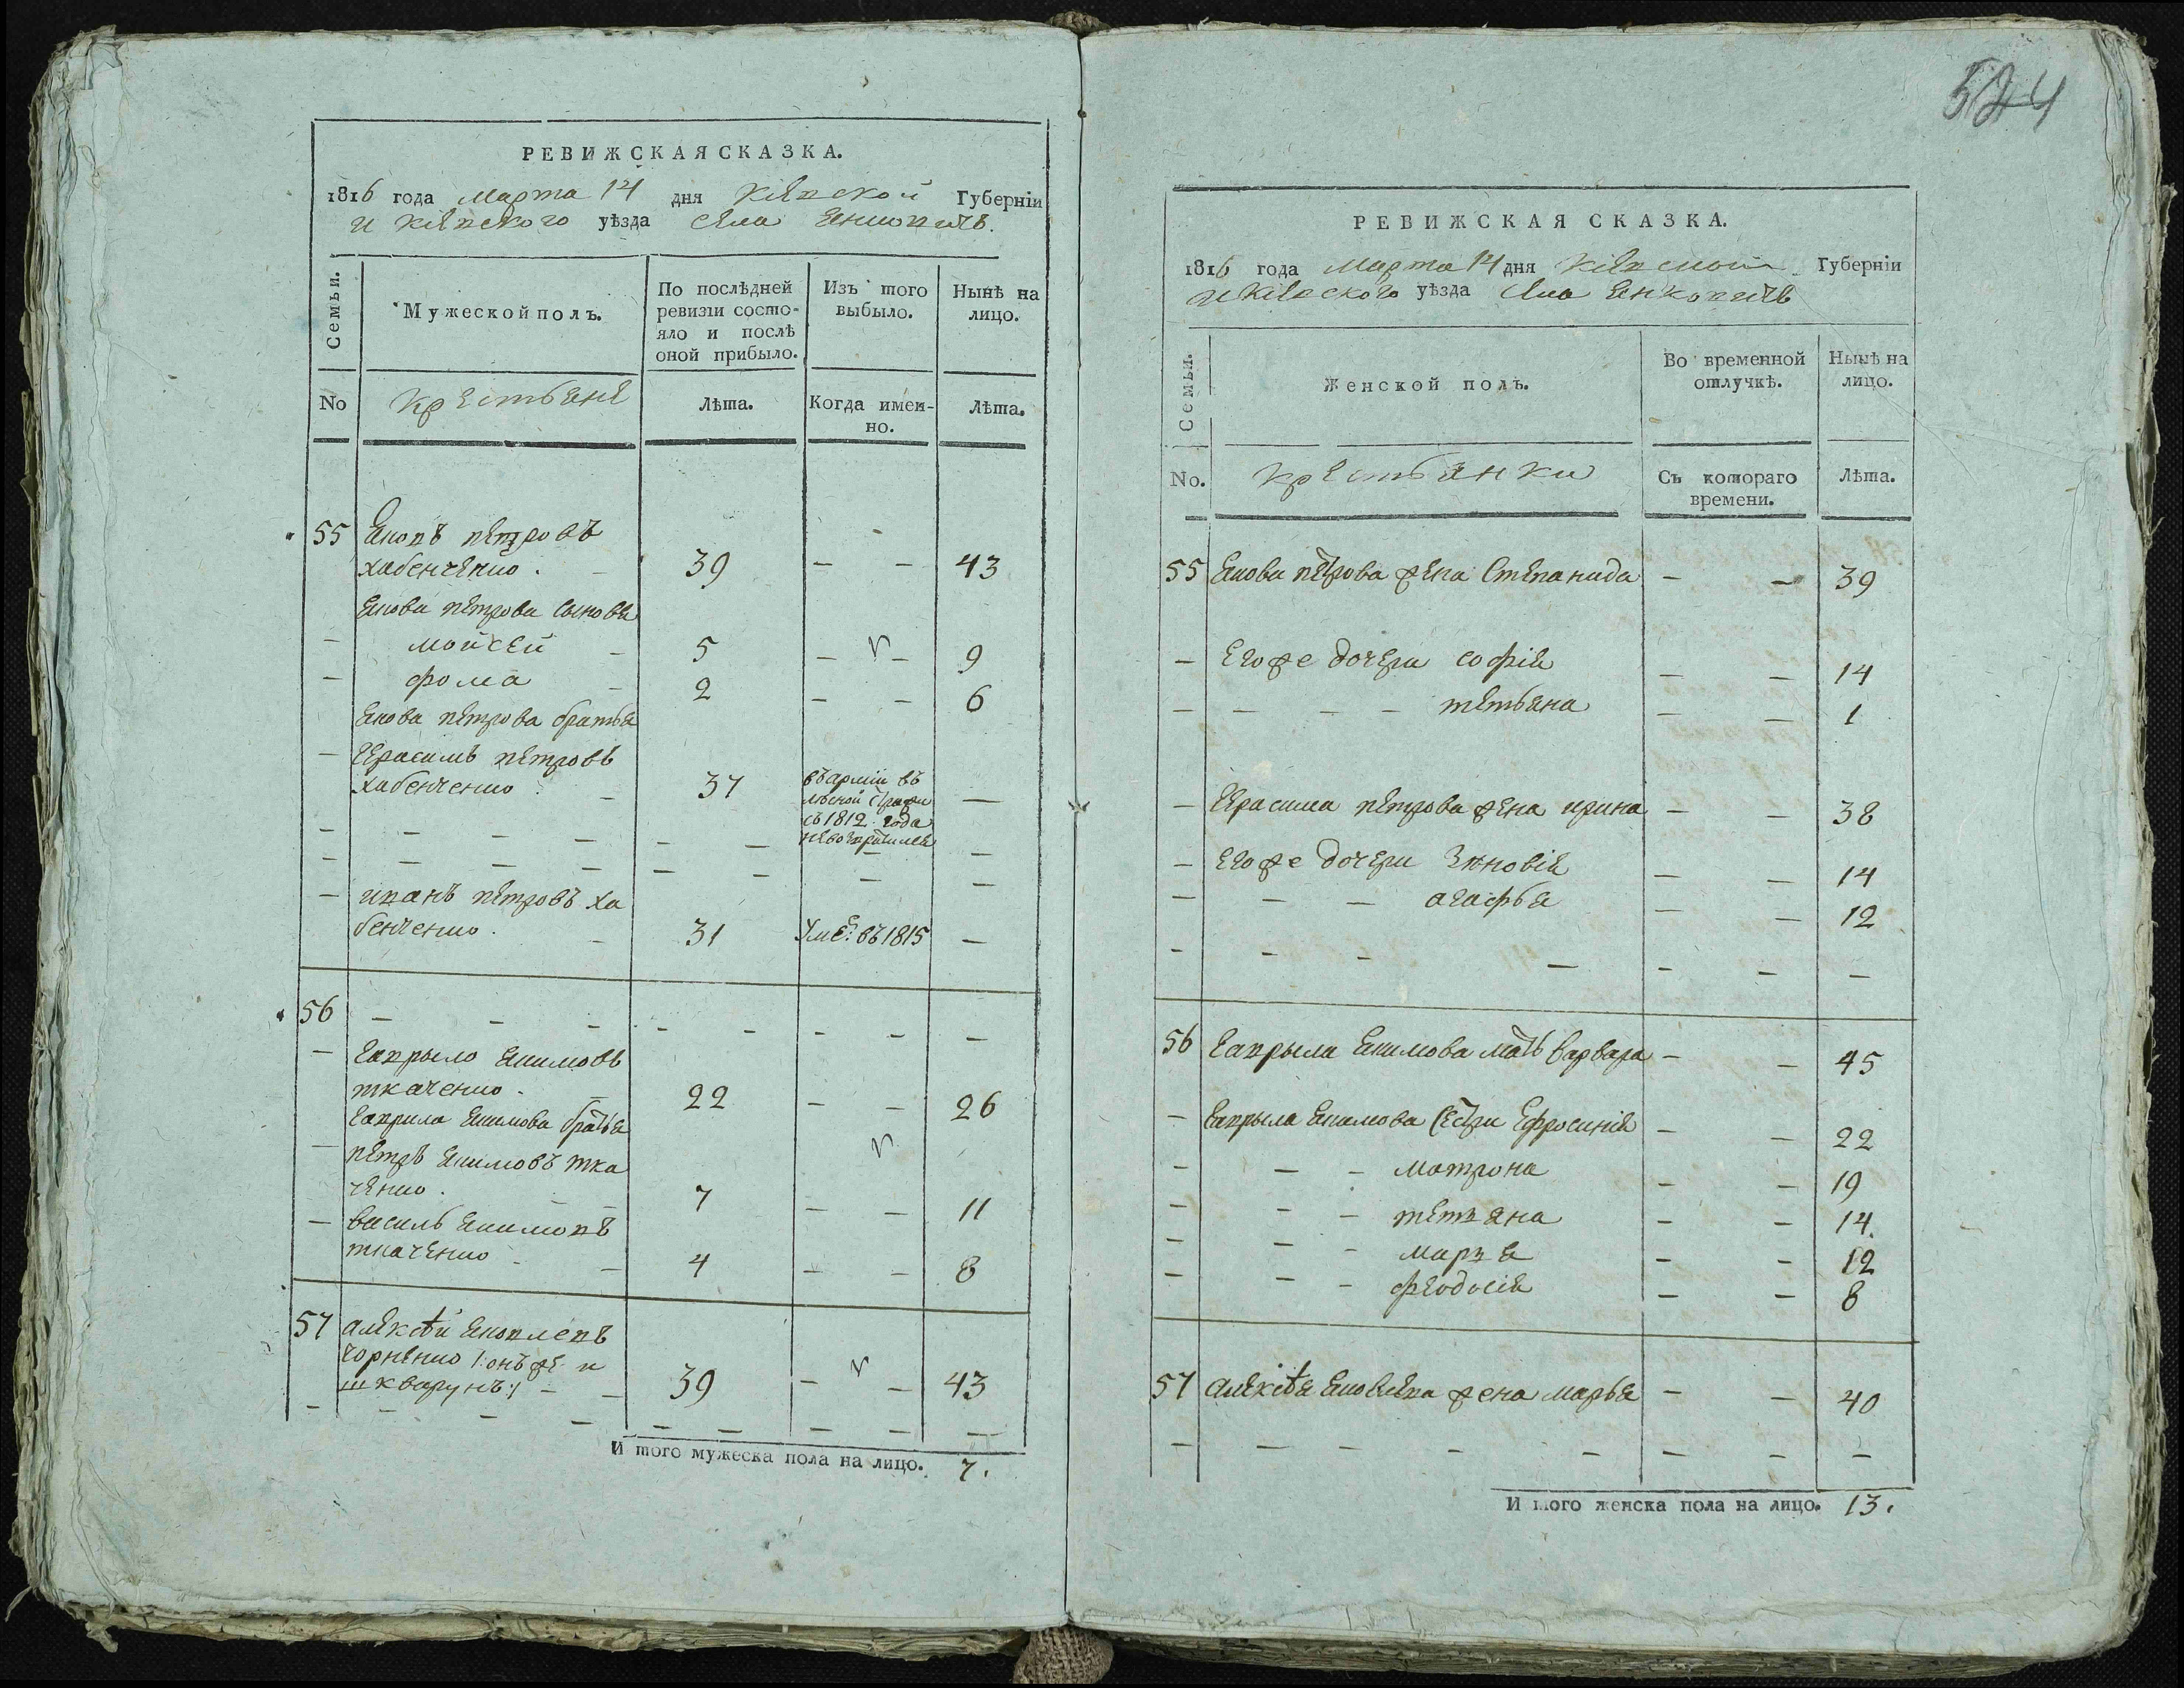 РЕВИЖСКАЯ СКАЗКА.
1816 года Марта 14 дня Кіевской Губерніи
и Кіевского уѣзда села Янковичъ.
Семьи.
Мужеской полъ.
По послѣдней ревизіи состо-
яло и послѣ
оной прибыло.
Изъ того
выбыло.
Нынѣ на
лицо.
No
Крестьяне
Лѣта.
Когда имен-
но.
Лѣта.
55 Яковъ Петровъ
хабенченко. 39 — — 43
Якова Петрова сыновья
— Мойсей 5 — — 9
— Фома 2 — — 6
Якова Петрова братья
— Герасимъ Петровъ
хабенченко 37 —
въ арміи въ
съ 1812 года
— Иванъ Петровъ ха
бенченко. 31 Уме: въ 1815 —
56 — — — — — — — —
— Гаврыло Якимовъ
ткаченко. 22 — — 26
Гаврила Якимова братья
— Петръ Якимовъ тка
ченко. 7 — — 11
— Василь Якимовъ
ткаченко 4 — — 8
57 Алексѣй Яковлевъ
Чорненко /: онъ же и
шкварунъ :/ 39 — — 43
И того мужеска пола на лицо. 7.
524
РЕВИЖСКАЯ СКАЗКА.
1816 года Марта 14 дня Кіевской Губерніи
и Кіевского уѣзда села Янковичъ
Семьи.
Женской полъ.
Во временной
отлучкѣ.
Нынѣ на
лицо.
No.
Крестьянки
Съ котораго
времени.
Лѣта.
55 Якова Петрова жена Степанида — — 39
— Его же дочери Софія — — 14
— — — — Тетьяна — — 1
— Герасима Петрова жена Ирина — — 38
— Его же дочери Зѣновія — — 14
— — — Агафья — — 12
— — — — — — —
56 Гаврыла Якимова мать Варвара — — 45
— Гаврыла Якимова сестри Ефросинія — — 22
— — — Матрона — — 19
— — — Тетьяна — — 14.
— — — Марья — — 12
— — — Феодосія — — 8
57 Алексѣя Яковлева жена Марья — — 40
— — — — — — — —
И того женска пола на лицо. 13.